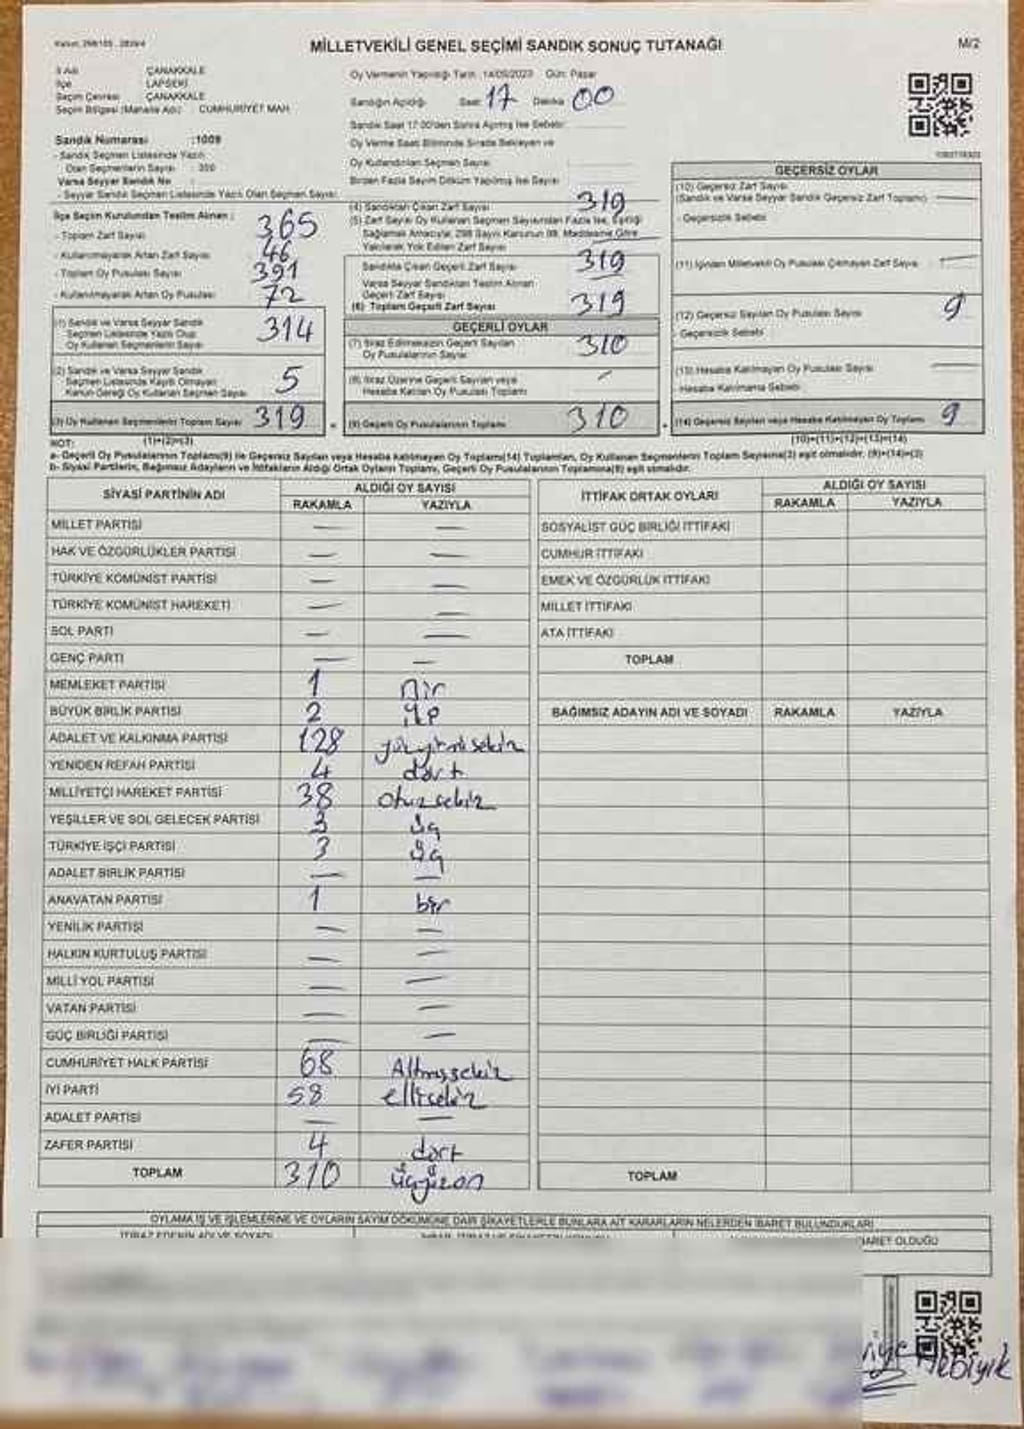 MİLLETVEKİLİ GENEL SEÇİMİ SANDIK SONUÇ TUTANAĞI
M/2
İl Adı ÇANAKKALE
İlçe LAPSEKİ
Seçim Çevresi ÇANAKKALE
Seçim Bölgesi (Mahalle Adı) : CUMHURİYET MAH.
Sandık Numarası :1009
- Sandık Seçmen Listesinde Yazılı
Olan Seçmenlerin Sayısı
Varsa Seyyar Sandık No
- Seyyar Sandık Seçmen Listesinde Yazılı Olan Seçmen Sayısı
Oy Vermenin Yapıldığı Tarih : 14/05/2023 Gün: Pazar
Sandığın Açıldığı Saat 17 Dakika 00
Sandık Saat 17:00'den Sonra Açılmış İse Sebebi:
Oy Verme Saati Bitiminde Sırada Bekleyen ve
Oy Kullandırılan Seçmen Sayısı
Birden Fazla Sayım Döküm Yapılmış İse Sayısı
İlçe Seçim Kurulundan Teslim Alınan :
- Toplam Zarf Sayısı 365
- Kullanılmayarak Artan Zarf Sayısı 46
- Toplam Oy Pusulası Sayısı 391
- Kullanılmayarak Artan Oy Pusulası 72
(1) Sandık ve Varsa Seyyar Sandık
Seçmen Listesinde Yazılı Olup
Oy Kullanan Seçmenlerin Sayısı 314
(2) Sandık ve Varsa Seyyar Sandık
Seçmen Listesinde Kayıtlı Olmayan
Kanun Gereği Oy Kullanan Seçmen Sayısı 5
(3) Oy Kullanan Seçmenlerin Toplam Sayısı 319
(4) Sandıktan Çıkan Zarf Sayısı 319
(5) Zarf Sayısı Oy Kullanan Seçmen Sayısından Fazla İse, Eşitliği
Sağlamak Amacıyla, 298 Sayılı Kanunun 98. Maddesine Göre
Yakılarak Yok Edilen Zarf Sayısı
Sandıkta Çıkan Geçerli Zarf Sayısı 319
Varsa Seyyar Sandıktan Teslim Alınan
Geçerli Zarf Sayısı
(6) Toplam Geçerli Zarf Sayısı 319
GEÇERLİ OYLAR
(7) İtiraz Edilmeksizin Geçerli Sayılan
Oy Pusulalarının Sayısı 310
(8) İtiraz Üzerine Geçerli Sayılan veya
Hesaba Katılan Oy Pusulası Toplamı
(9) Geçerli Oy Pusulalarının Toplamı 310
GEÇERSİZ OYLAR
(10) Geçersiz Zarf Sayısı
(Sandık ve Varsa Seyyar Sandık Geçersiz Zarf Toplamı)
- Geçersizlik Sebebi
(11) İçinden Milletvekili Oy Pusulası Çıkmayan Zarf Sayısı
(12) Geçersiz Sayılan Oy Pusulası Sayısı 9
- Geçersizlik Sebebi
(13) Hesaba Katılmayan Oy Pusulası Sayısı
- Hesaba Katılmama Sebebi
(14) Geçersiz Sayılan veya Hesaba Katılmayan Oy Toplamı 9
NOT: (1)+(2)=(3) (10)+(11)+(12)+(13)=(14)
a- Geçerli Oy Pusulalarının Toplamı(9) ile Geçersiz Sayılan veya Hesaba Katılmayan Oy Toplamı(14) Toplamları, Oy Kullanan Seçmenlerin Toplam Sayısına(3) eşit olmalıdır. (9)+(14)=(3)
b- Siyasi Partilerin, Bağımsız Adayların ve İttifakların Aldığı Ortak Oyların Toplamı, Geçerli Oy Pusulalarının Toplamına(9) eşit olmalıdır.
SİYASİ PARTİNİN ADI ALDIĞI OY SAYISI
RAKAMLA YAZIYLA
MİLLET PARTİSİ — —
HAK VE ÖZGÜRLÜKLER PARTİSİ — —
TÜRKİYE KOMÜNİST PARTİSİ — —
TÜRKİYE KOMÜNİST HAREKETİ — —
SOL PARTİ — —
GENÇ PARTİ — —
MEMLEKET PARTİSİ 1 Bir
BÜYÜK BİRLİK PARTİSİ 2
ADALET VE KALKINMA PARTİSİ 128 yüzyirmisekiz
YENİDEN REFAH PARTİSİ 4 dört
MİLLİYETÇİ HAREKET PARTİSİ 38 otuzsekiz
YEŞİLLER VE SOL GELECEK PARTİSİ 3 üç
TÜRKİYE İŞÇİ PARTİSİ 3 üç
ADALET BİRLİK PARTİSİ — —
ANAVATAN PARTİSİ 1 bir
YENİLİK PARTİSİ — —
HALKIN KURTULUŞ PARTİSİ — —
MİLLİ YOL PARTİSİ — —
VATAN PARTİSİ — —
GÜÇ BİRLİĞİ PARTİSİ — —
CUMHURİYET HALK PARTİSİ 68 Altmışsekiz
İYİ PARTİ 58 ellisekiz
ADALET PARTİSİ — —
ZAFER PARTİSİ 4 dört
TOPLAM 310 üçyüzon
İTTİFAK ORTAK OYLARI ALDIĞI OY SAYISI
RAKAMLA YAZIYLA
SOSYALİST GÜÇ BİRLİĞİ İTTİFAKI
CUMHUR İTTİFAKI
EMEK VE ÖZGÜRLÜK İTTİFAKI
MİLLET İTTİFAKI
ATA İTTİFAKI
TOPLAM
BAĞIMSIZ ADAYIN ADI VE SOYADI RAKAMLA YAZIYLA
TOPLAM
OYLAMA İŞ VE İŞLEMLERİNE VE OYLARIN SAYIM DÖKÜMÜNE DAİR ŞİKAYETLERLE BUNLARA AİT KARARLARIN NELERDEN İBARET BULUNDUKLARI
İTİRAZ EDENİN ADI VE SOYADI